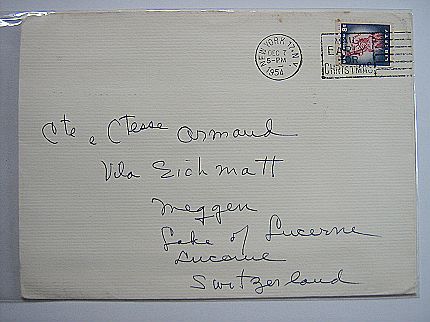 NEW YORK 17, N.Y.
DEC 7
5-PM
1954
CHRISTMAS
LIBERTY
Cte e Ctesse Armand
Vila Eichmatt
Meggen
Lake of Lucerne
Lucerne
Switzerland